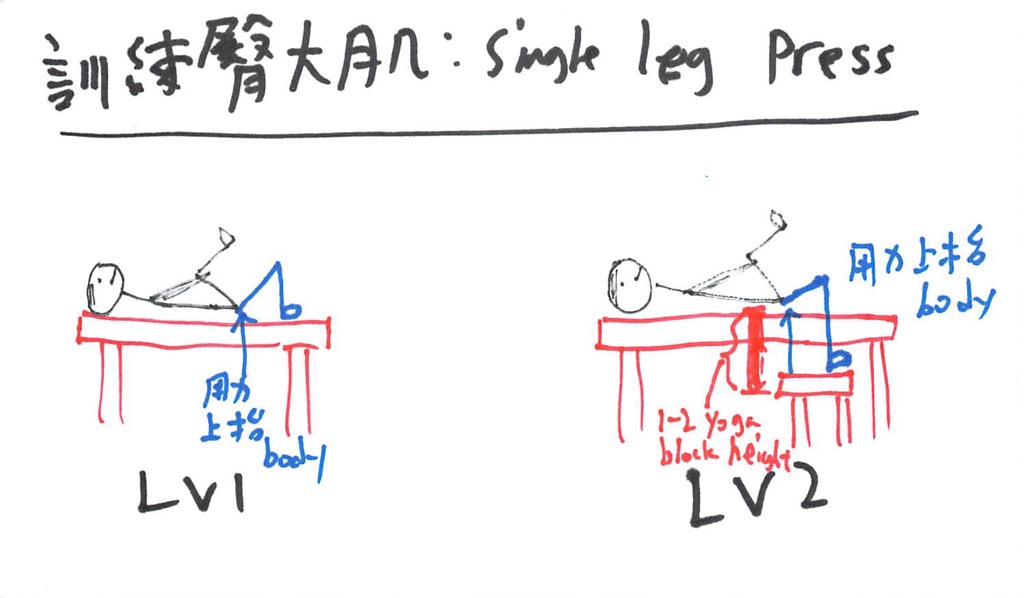 訓練臀大肌: Single leg Press
用力
上抬
body
LV1
用力上抬
body
1-2 yoga
block height
LV2